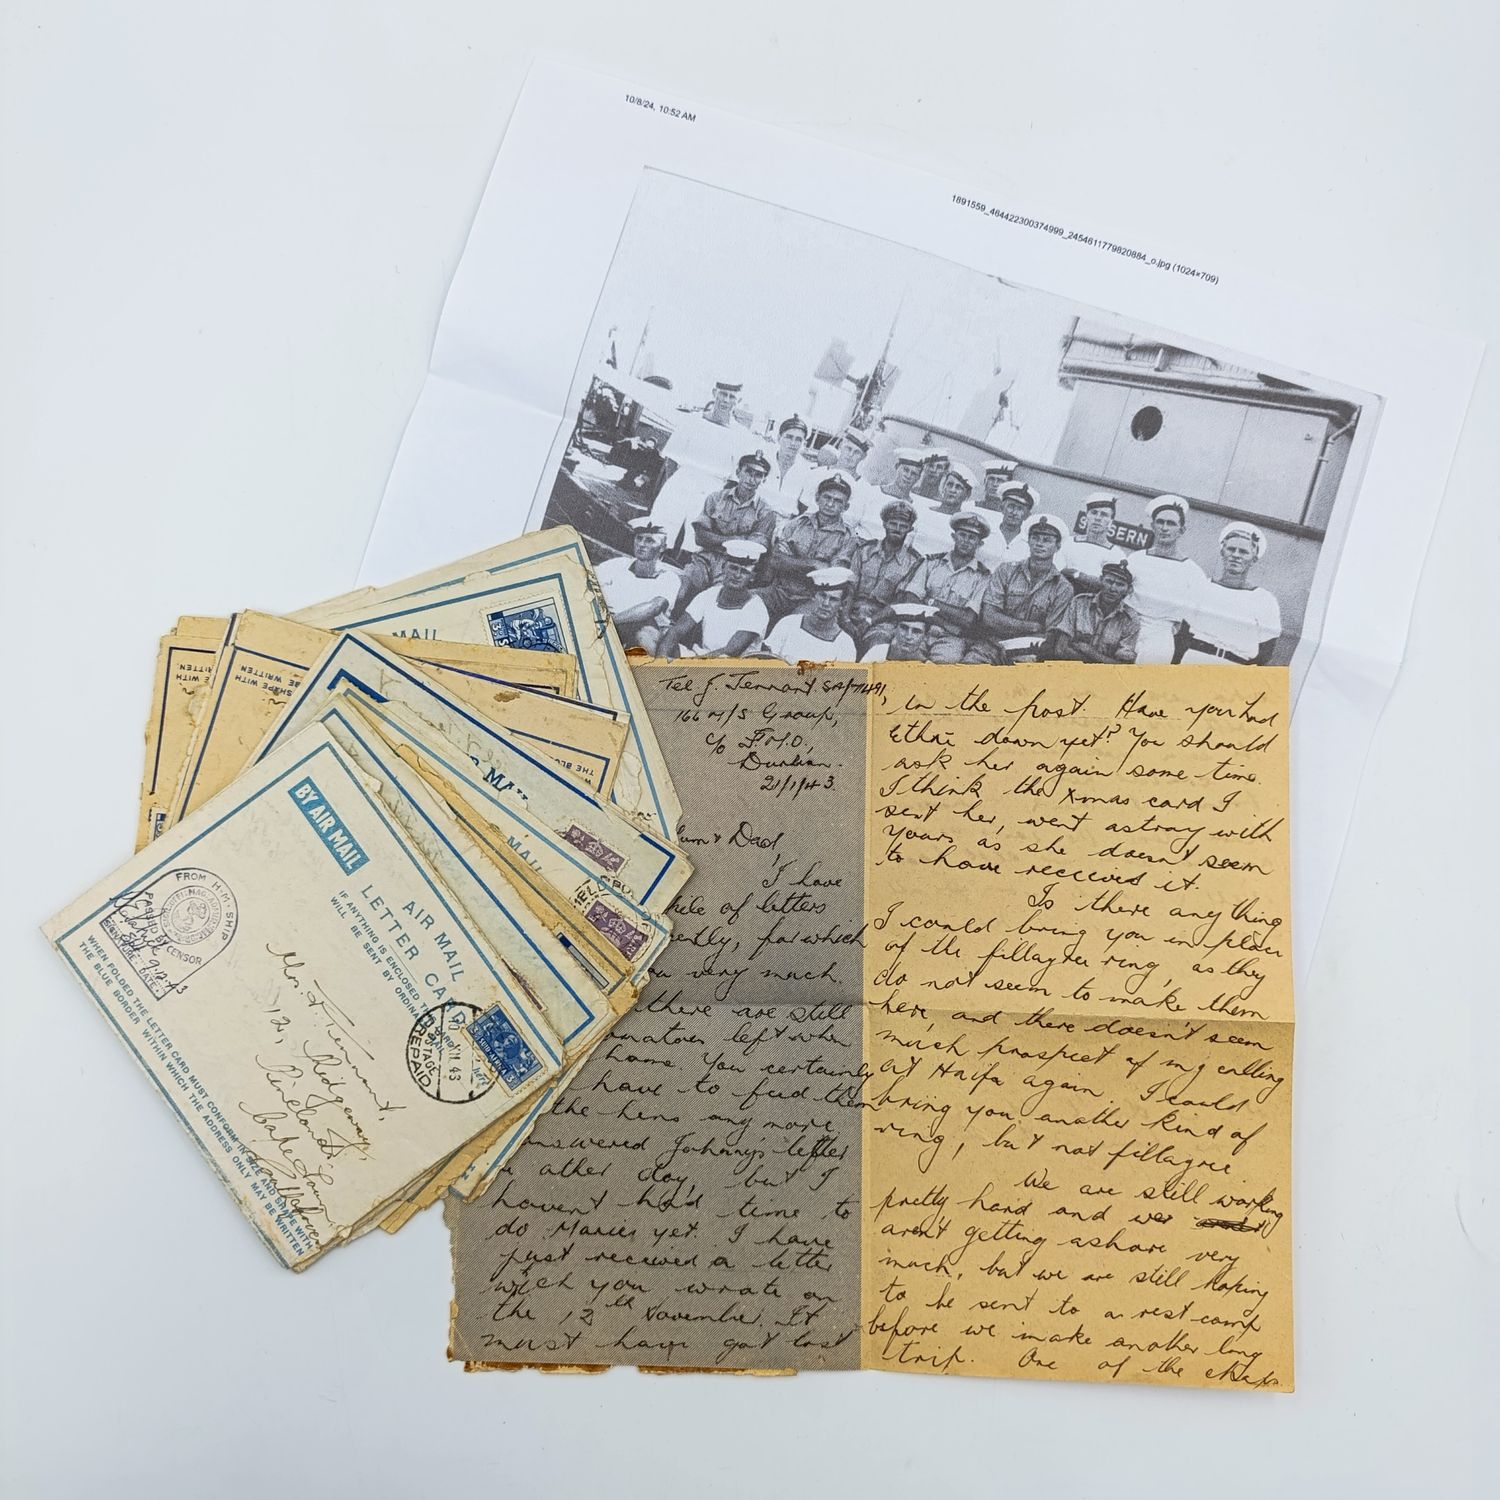 10/8/24, 10:52 AM
1891559_464422300374999_2454611779820884_o.jpg (1024×709)
SERN
MAIL
MAIL
BY AIR MAIL
AIR MAIL
LETTER CARD
IF ANYTHING IS ENCLOSED
WILL BE SENT BY ORDINARY
FROM H.M. SHIP
PASSED BY CENSOR
SIGNATURE
DATE
9.12.43
WHEN FOLDED THE LETTER CARD MUST CONFORM IN SIZE AND SHAPE WITH
THE BLUE BORDER WITHIN WHICH THE ADDRESS ONLY MAY BE WRITTEN
Mrs. F. Tennant,
12, Ridgeway,
Pinelands,
Cape Town
POSTAGE
PREPAID
43
Tel J. Tennant
166 M/S Group,
c/o F.M.O,
Durban.
21/1/43.
Mum & Dad,
I have
pile of letters
recently, for which
you very much.
there are still
tomatoes left when
home. You certainly
have to feed them
the hens any more.
answered Johnny's letter
other day, but I
haven't had time to
do Maries yet. I have
just received a letter
which you wrote on
the 12th November. It
must have got lost
in the post. Have you had
down yet? You should
ask her again some time.
I think the Xmas card I
sent her, went astray with
yours as she doesn't seem
to have received it.
Is there anything
I could bring you in place
of the fillagree ring, as they
do not seem to make them
here, and there doesn't seem
much prospect of my calling
at Haifa again. I could
bring you another kind of
ring, but not fillagree
We are still working
pretty hard and we
aren't getting ashore very
much, but we are still hoping
to be sent to a rest camp
before we make another long
trip. One of the chaps